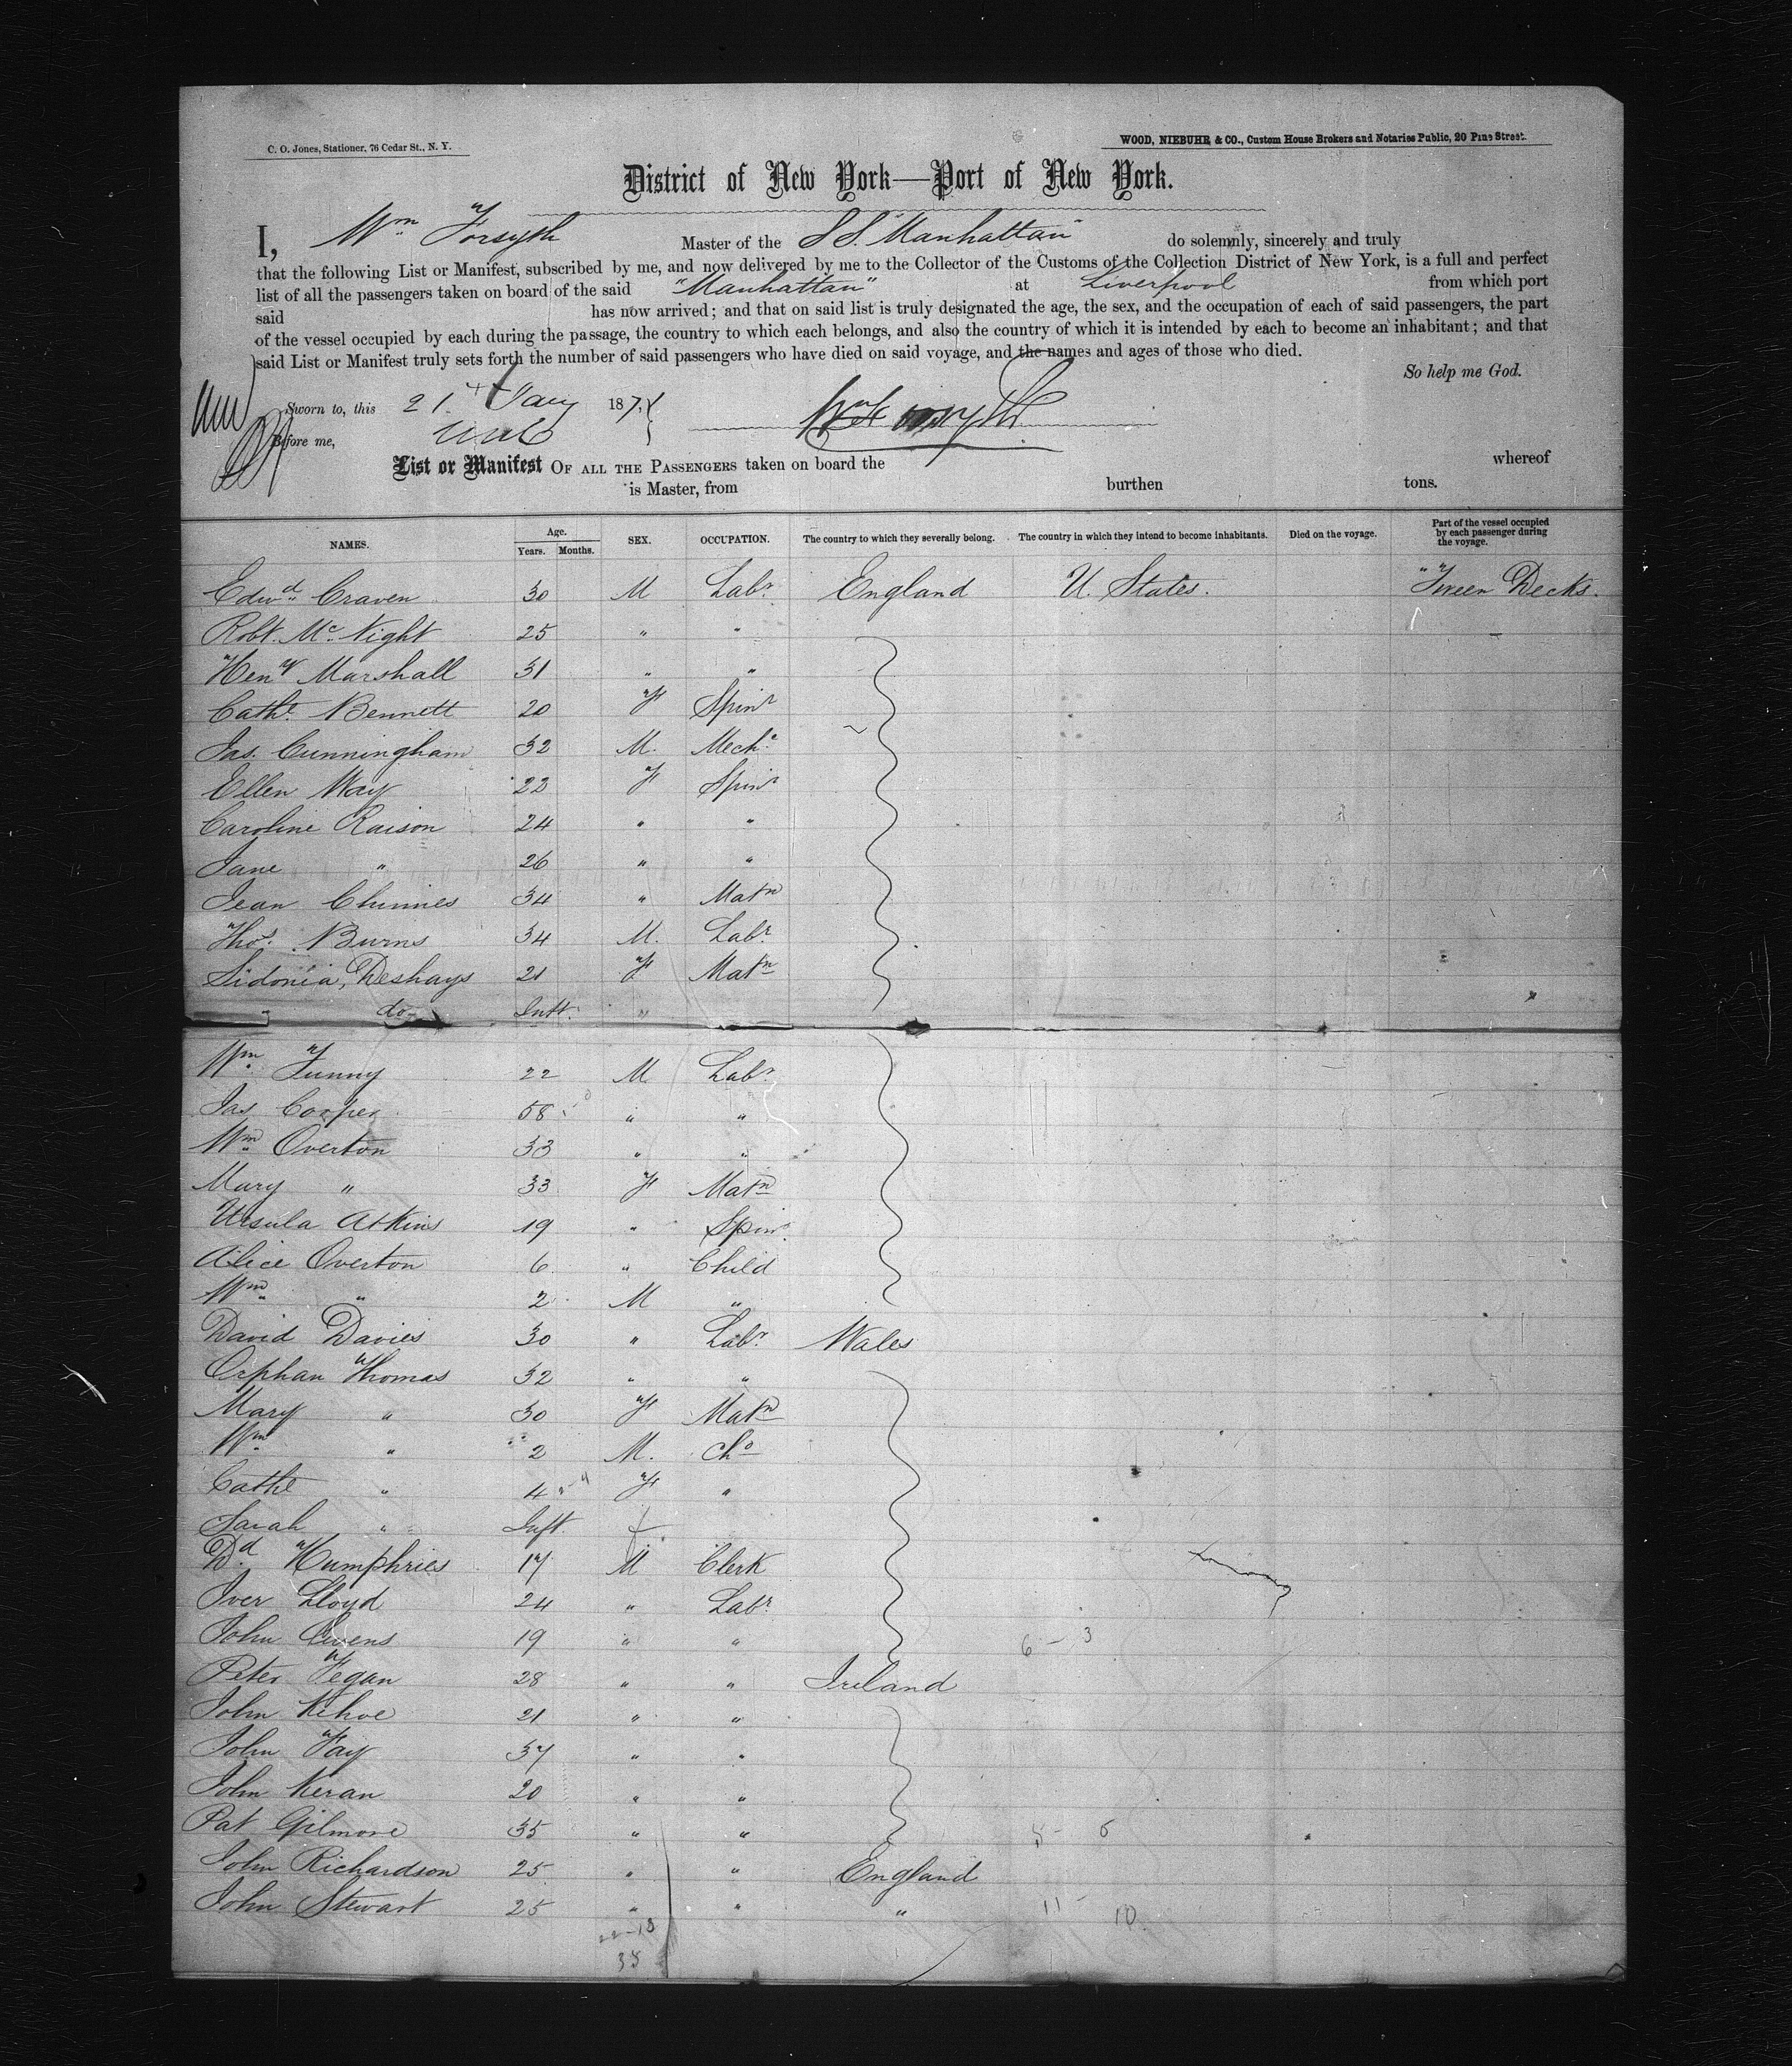 C. O. Jones, Stationer, 76 Cedar St., N. Y.
WOOD, NIEBUHR & CO., Custom House Brokers and Notaries Public, 20 Pine Street.
District of New York—Port of New York.
I, Wm Forsyth Master of the S S. Manhattan do solemnly, sincerely and truly
that the following List or Manifest, subscribed by me, and now delivered by me to the Collector of the Customs of the Collection District of New York, is a full and perfect
list of all the passengers taken on board of the said "Manhattan" at Liverpool from which port
said has now arrived; and that on said list is truly designated the age, the sex, and the occupation of each of said passengers, the part
of the vessel occupied by each during the passage, the country to which each belongs, and also the country of which it is intended by each to become an inhabitant; and that
said List or Manifest truly sets forth the number of said passengers who have died on said voyage, and the names and ages of those who died.
So help me God.
Sworn to, this 21 Jany 187
Before me,
Wm Forsyth
List or Manifest OF ALL THE PASSENGERS taken on board the whereof
is Master, from burthen tons.
NAMES. Age. Years. Months. SEX. OCCUPATION. The country to which they severally belong. The country in which they intend to become inhabitants. Died on the voyage. Part of the vessel occupied by each passenger during the voyage.
Edwd Craven 30 M Labr England U. States. "Tween Decks.
Robt. Mc Night 25 " "
Heny Marshall 31 " "
Cathe Bennett 20 F Spinr
Jas. Cunningham 32 M. Mechc
Ellen Way 22 F Spinr
Caroline Raison 24 " "
Jane " 26 " "
Jean Chimies 34 " Matn
Thos. Burns 34 M. Labr
Sidonia, Deshays 21 F Matn
" do Inft. "
Wm Funny 22 M Labr
Jas Cooper 58 " "
Wm Overton 33 " "
Mary " 33 F Matn
Ursula Atkins 19 " Spinr
Alice Overton 6 " Child
Wm " 2 M "
David Davies 30 " Labr Wales
Orphan Thomas 32 " "
Mary " 30 F Matn
Wm " 2 M. Cho
Cathe " 4 F "
Sarah " Inft. f
Dd Humphries 17 M Clerk
Iver Lloyd 24 " Labr
John Owens 19 " " 6 - 3
Peter Fegan 28 " " Ireland
John Kehoe 21 " "
John Fay 37 " "
John Keran 20 " "
Pat Gilmore 35 " " 5 - 5
John Richardson 25 " " England
John Stewart 25 " " " 11 - 10
22-13
35